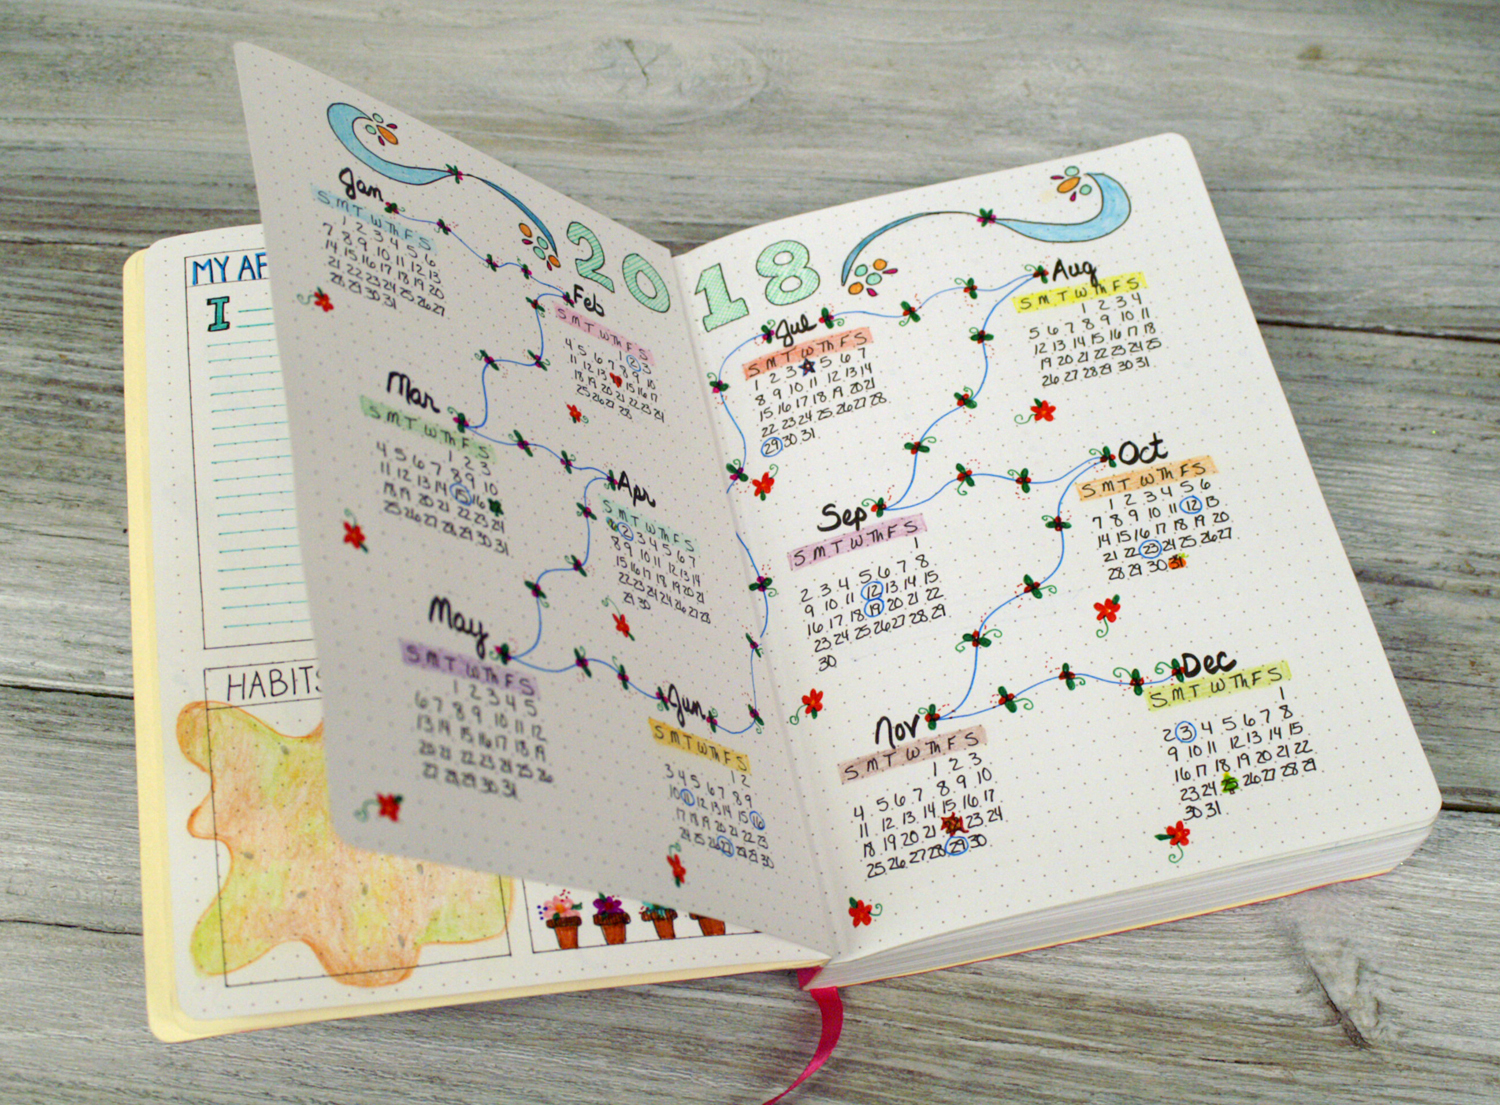 MY AF
I
HABITS
2018
Jan
S M T W Th F S
1 2 3 4 5 6
7 8 9 10 11 12 13
14 15 16 17 18 19 20
21 22 23 24 25 26 27
28 29 30 31
Feb
S M T W Th F S
1 2 3
4 5 6 7 8 9 10
11 12 13 15 16 17
18 19 20 21 22 23 24
25 26 27 28
Mar
S M T W Th F S
1 2 3
4 5 6 7 8 9 10
11 12 13 14 15 16
18 19 20 21 22 23 24
25 26 27 28 29 30 31
Apr
S M T W Th F S
1 2 3 4 5 6 7
8 9 10 11 12 13 14
15 16 17 18 19 20 21
22 23 24 25 26 27 28
29 30
May
S M T W Th F S
1 2 3 4 5
6 7 8 9 10 11 12
13 14 15 16 17 18 19
20 21 22 23 24 25 26
27 28 29 30 31
Jun
S M T W Th F S
1 2
3 4 5 6 7 8 9
10 11 12 13 14 15 16
17 18 19 20 21 22 23
24 25 26 27 28 29 30
Jul
S M T W Th F S
1 2 3 5 6 7
8 9 10 11 12 13 14
15 16 17 18 19 20 21
22 23 24 25 26 27 28
29 30 31
Aug
S M T W Th F S
1 2 3 4
5 6 7 8 9 10 11
12 13 14 15 16 17 18
19 20 21 22 23 24 25
26 27 28 29 30 31
Sep
S M T W Th F S
1
2 3 4 5 6 7 8
9 10 11 12 13 14 15
16 17 18 19 20 21 22
23 24 25 26 27 28 29
30
Oct
S M T W Th F S
1 2 3 4 5 6
7 8 9 10 11 12 13
14 15 16 17 18 19 20
21 22 23 24 25 26 27
28 29 30 31
Nov
S M T W Th F S
1 2 3
4 5 6 7 8 9 10
11 12 13 14 15 16 17
18 19 20 21 23 24
25 26 27 28 29 30
Dec
S M T W Th F S
1
2 3 4 5 6 7 8
9 10 11 12 13 14 15
16 17 18 19 20 21 22
23 24 25 26 27 28 29
30 31